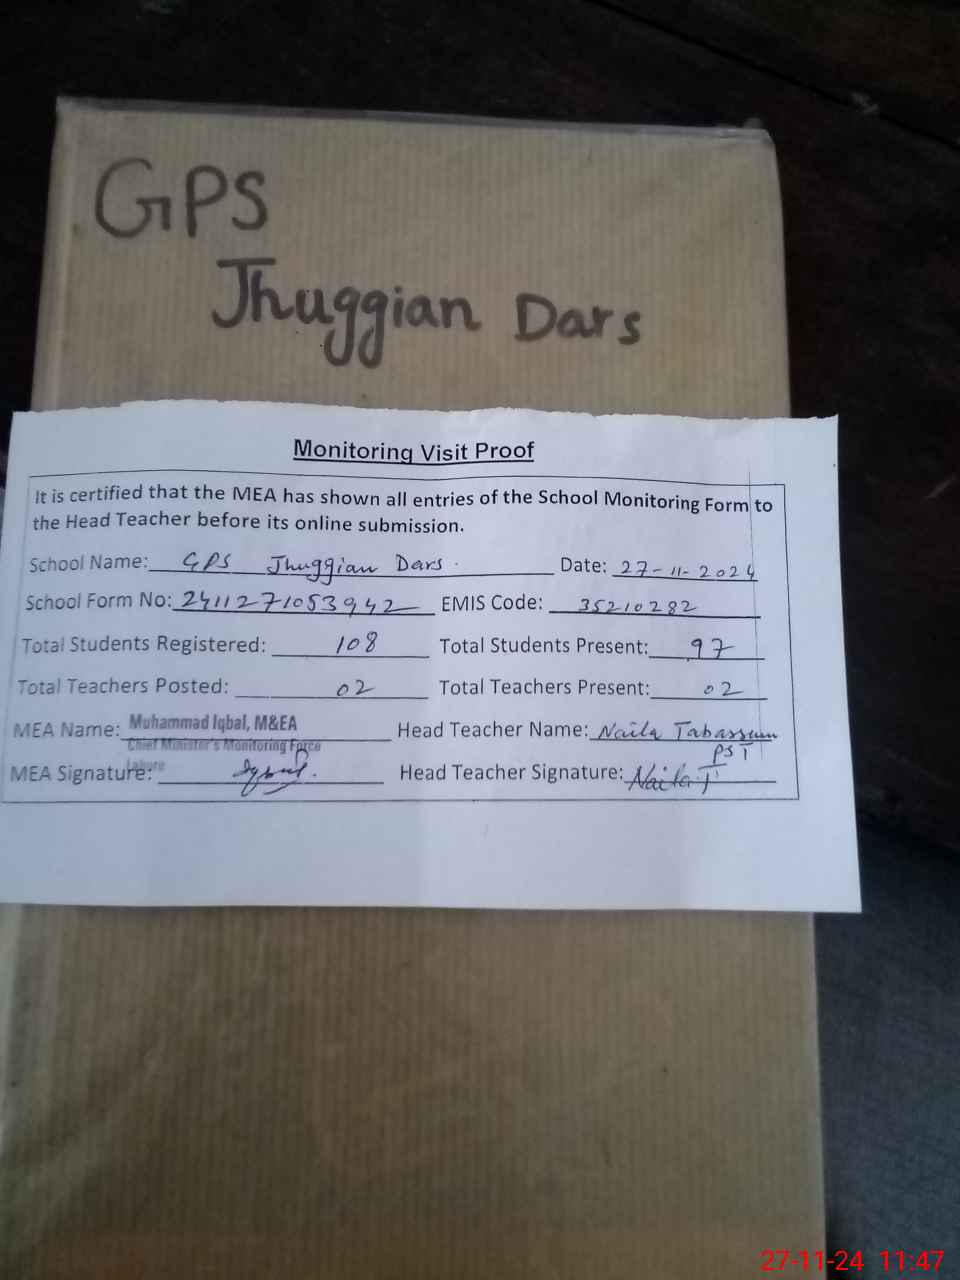 GPS
Jhuggian Dars
Monitoring Visit Proof
It is certified that the MEA has shown all entries of the School Monitoring Form to
the Head Teacher before its online submission.
School Name: GPS Jhuggian Dars. Date: 27-11-2024
School Form No: 2411271053942 EMIS Code: 35210282
Total Students Registered: 108 Total Students Present: 97
Total Teachers Posted: 02 Total Teachers Present: 02
MEA Name: Muhammad Iqbal, M&EA Head Teacher Name: Naila Tabassum
Chief Minister's Monitoring Force PST
Lahore
MEA Signature: Iqbal. Head Teacher Signature: Naila T
27-11-24 11:47